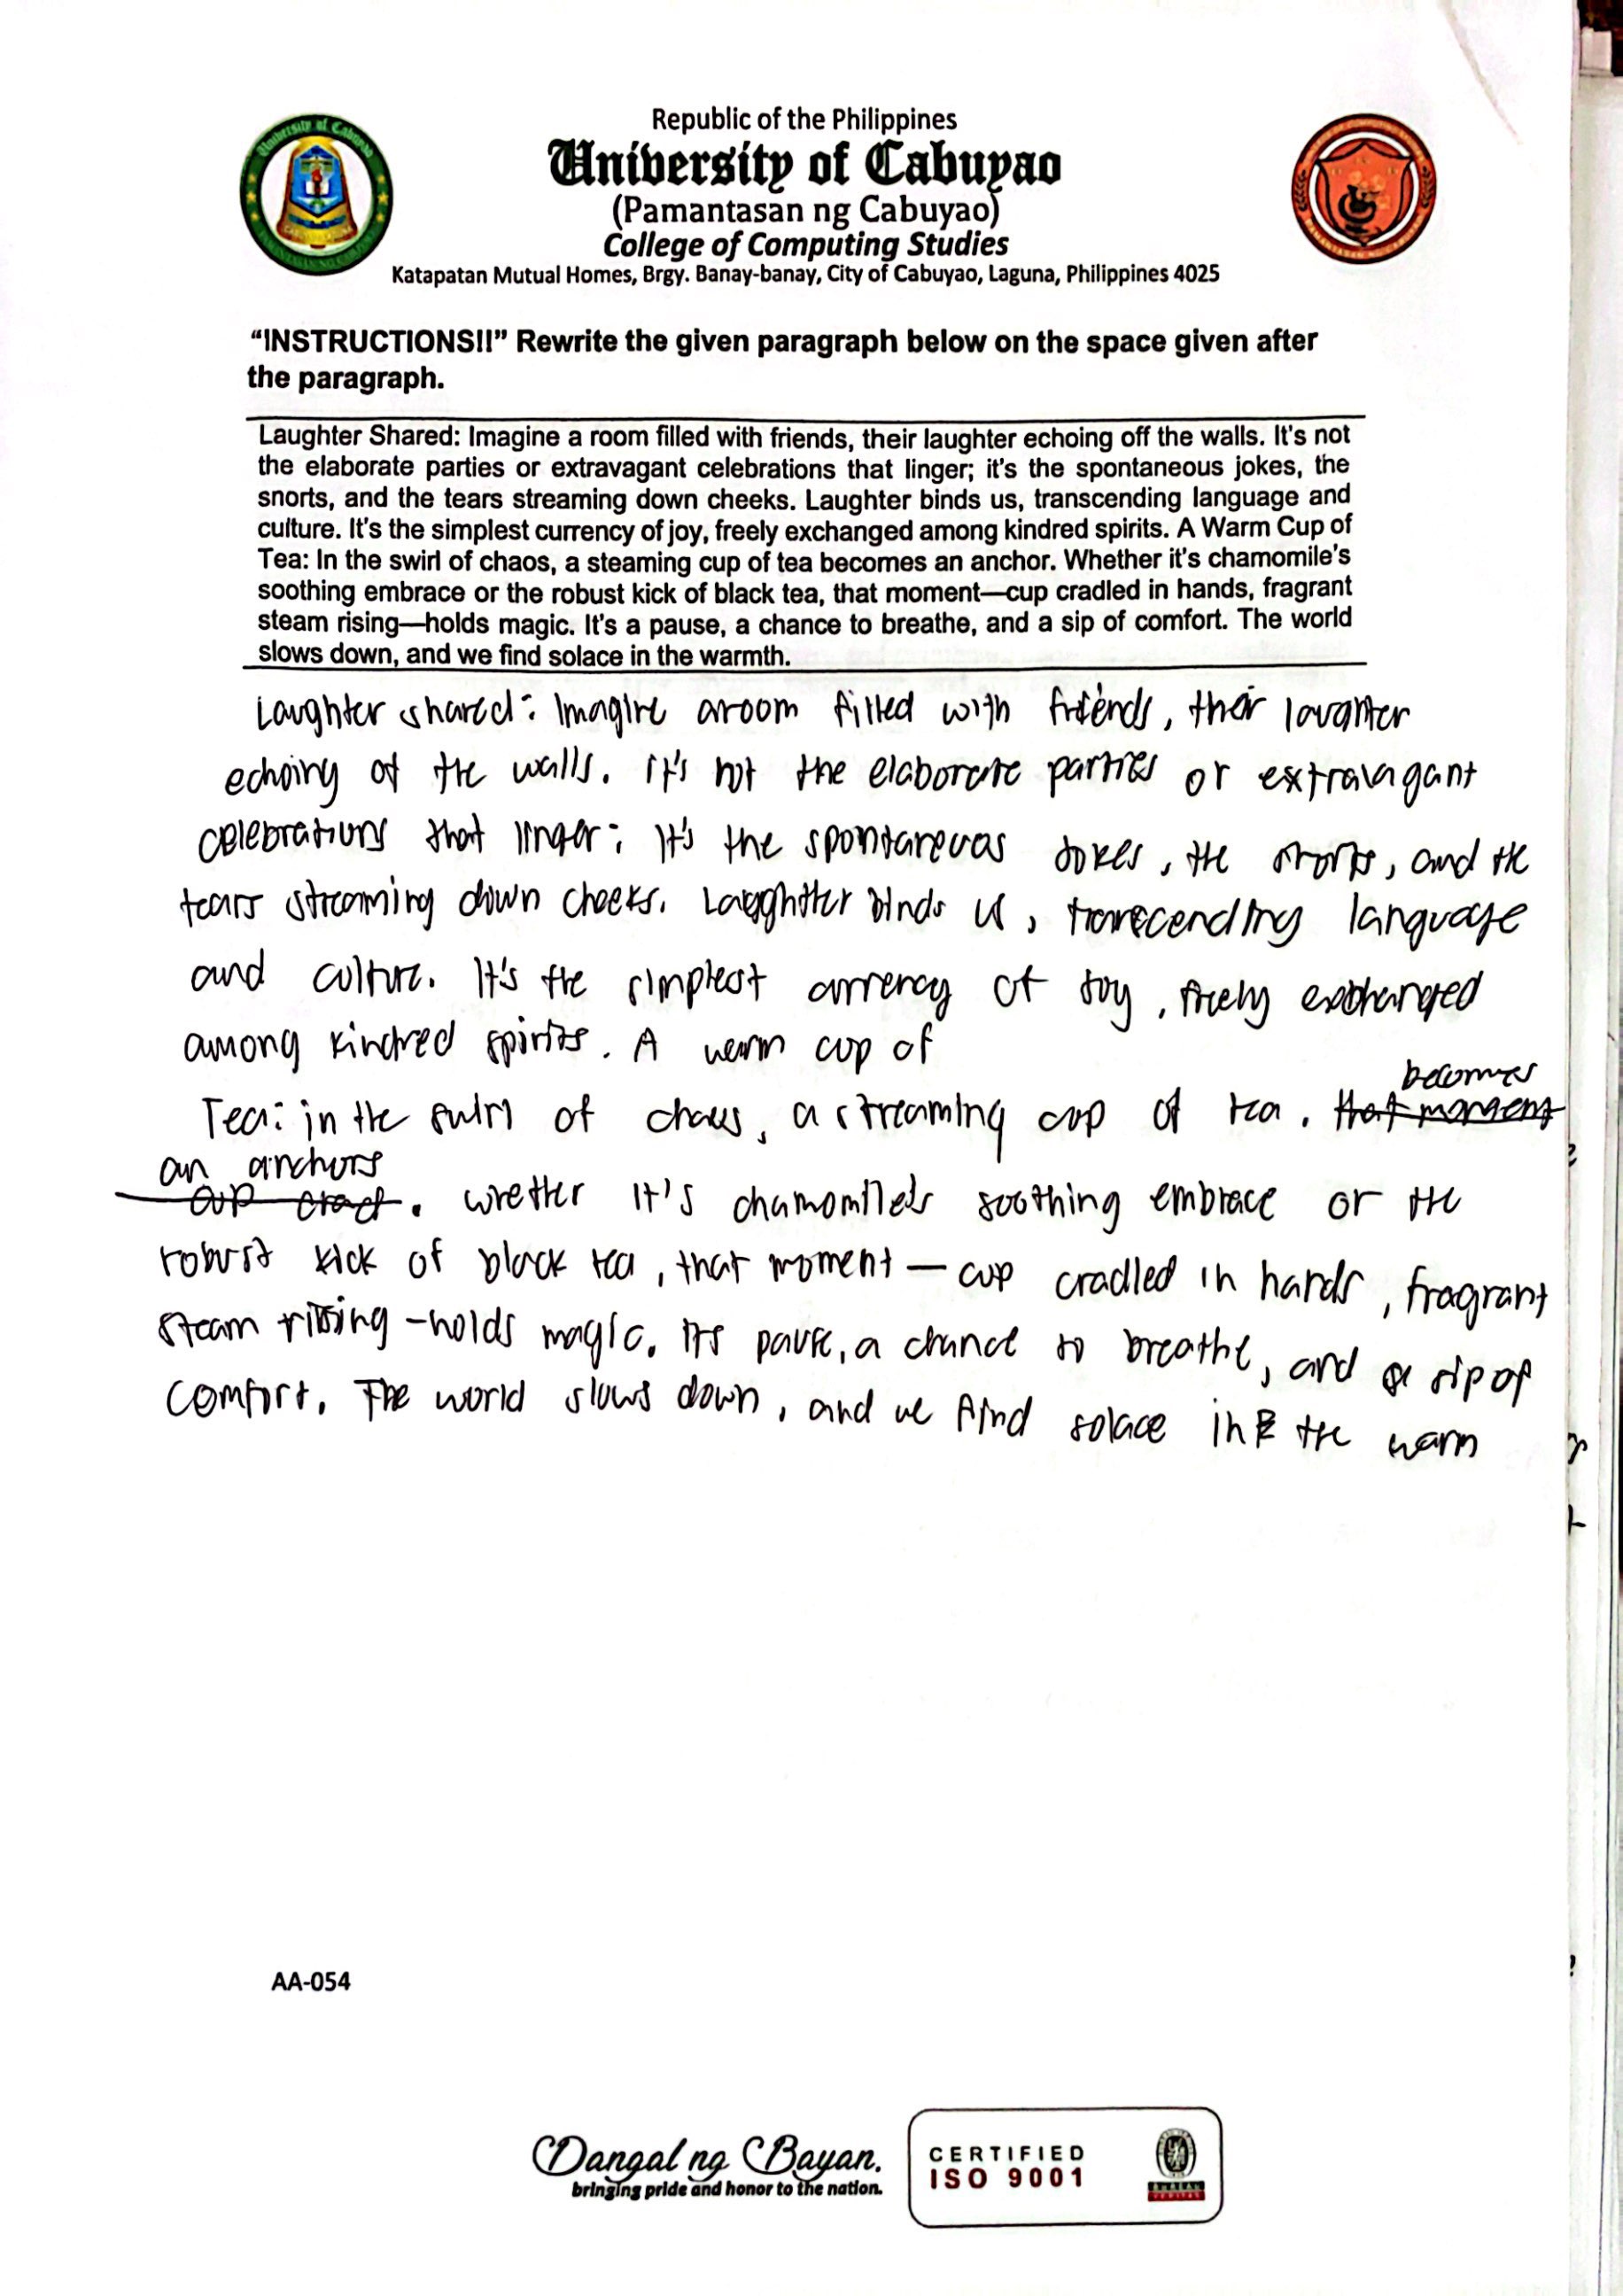 Republic of the Philippines
University of Cabuyao
(Pamantasan ng Cabuyao)
College of Computing Studies
Katapatan Mutual Homes, Brgy. Banay-banay, City of Cabuyao, Laguna, Philippines 4025
“INSTRUCTIONS!!” Rewrite the given paragraph below on the space given after
the paragraph.
Laughter Shared: Imagine a room filled with friends, their laughter echoing off the walls. It's not
the elaborate parties or extravagant celebrations that linger; it's the spontaneous jokes, the
snorts, and the tears streaming down cheeks. Laughter binds us, transcending language and
culture. It's the simplest currency of joy, freely exchanged among kindred spirits. A Warm Cup of
Tea: In the swirl of chaos, a steaming cup of tea becomes an anchor. Whether it's chamomile's
soothing embrace or the robust kick of black tea, that moment—cup cradled in hands, fragrant
steam rising—holds magic. It's a pause, a chance to breathe, and a sip of comfort. The world
slows down, and we find solace in the warmth.
Laughter shared: Imagine a room filled with friends, their laughter
echoing of the walls. It's not the elaborate parties or extravagant
celebrations that linger; It's the spontaneous jokes, the snorts, and the
tears streaming down cheeks. Laughter binds us, transcending language
and culture. It's the simplest currency of joy, freely exchanged
among kindred spirits. A warm cup of
becomes
Tea: in the swirl of chaos, a streaming cup of tea. that moment
an anchors
cup . wretter It's chamomile's soothing embrace or the
robust kick of black tea, that moment — cup cradled in hands, fragrant
steam rising -holds magic. Its pause, a chance to breathe, and a sip of
comfort. The world slows down, and we find solace in the warm
AA-054
Dangal ng Bayan.
bringing pride and honor to the nation.
CERTIFIED
ISO 9001